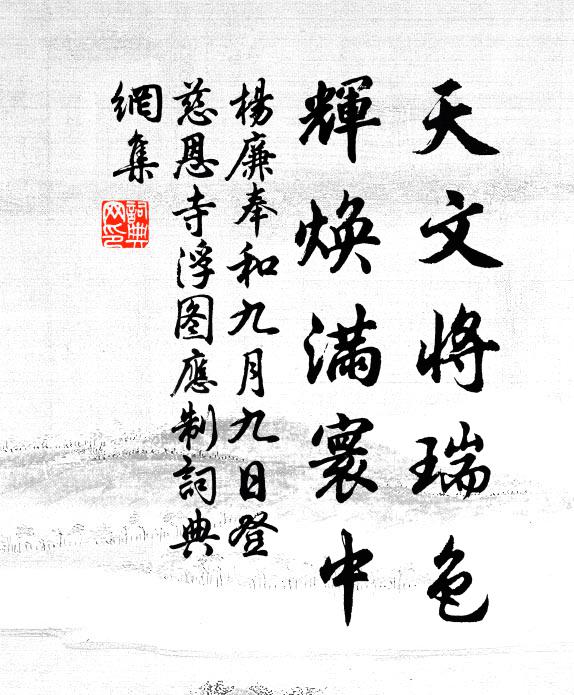 天文将瑞色
輝煥满寰中
楊廉奉和九月九日登
慈恩寺浮图應制詞典
網集
詞典
网印